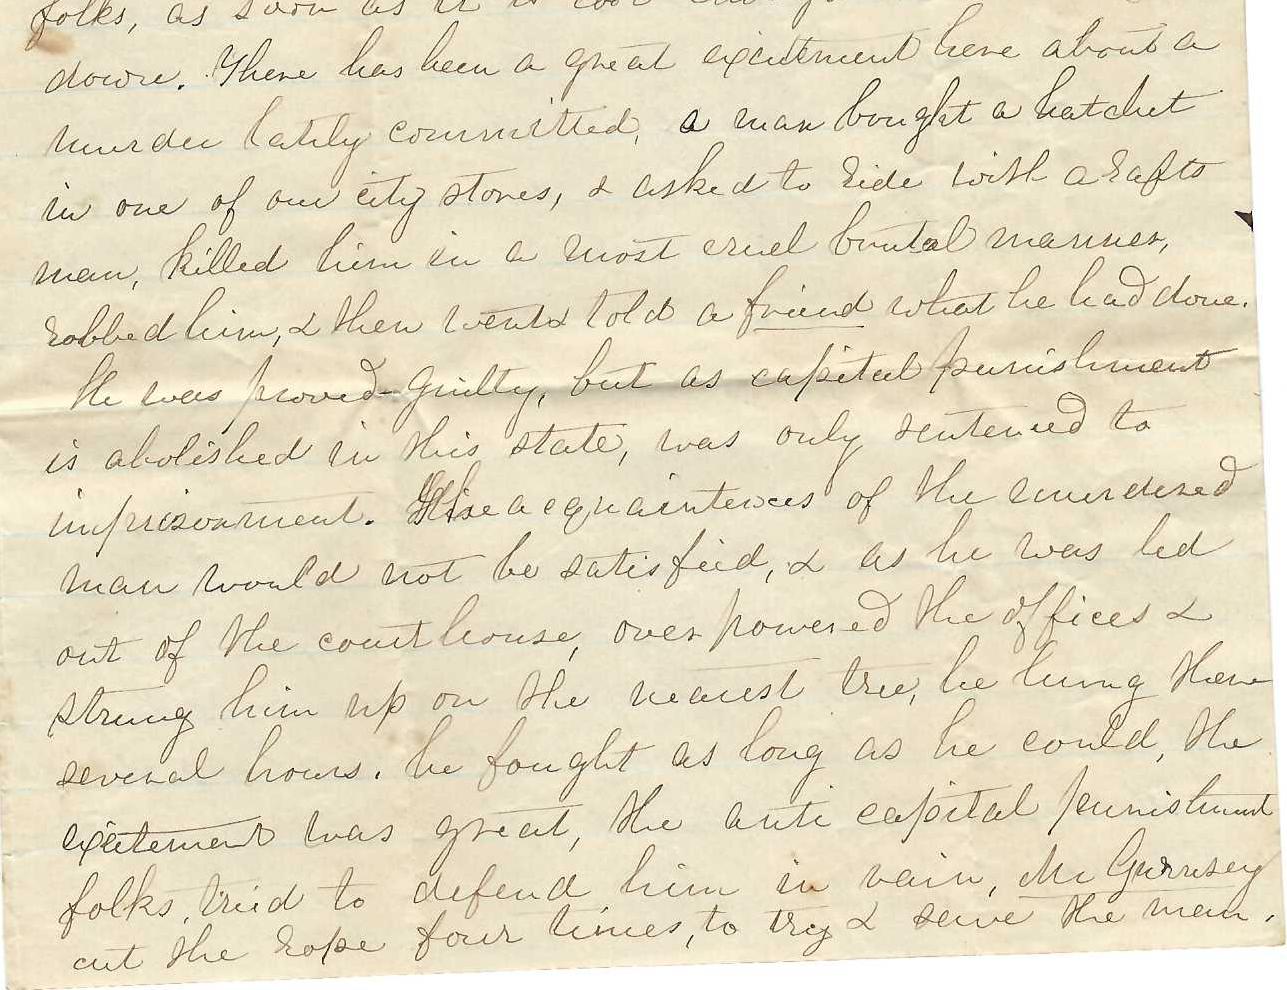 folks, as soon as it is cool
down. There has been a great excitement here about a
murder lately committed, a man bought a hatchet
in one of our city stores, & asked to ride with a rafts
man, killed him in a most cruel brutal manner,
robbed him, & then went & told a friend what he had done.
He was proved guilty, but as capital punishment
is abolished in this state, was only sentenced to
imprisonment. These acquaintences of the murdered
man would not be satisfied, & as he was led
out of the courthouse, over powered the offices &
strung him up on the nearest tree, he hung there
several hours. he fought as long as he could, the
excitement was great, the anti capital punishment
folks, tried to defend him in vain, Mr Gurnsey
cut the rope four times, to try & save the man.